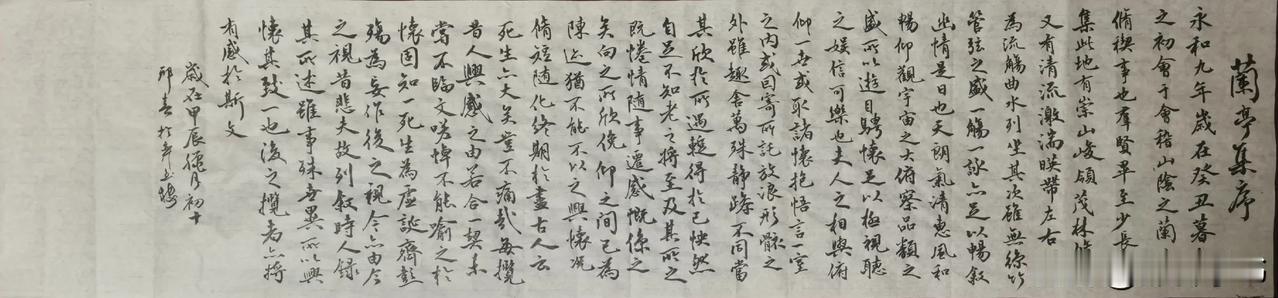 蘭亭集序
永和九年歲在癸丑暮
之初會于會稽山陰之蘭
脩禊事也羣賢畢至少長
集此地有崇山峻領茂林脩
又有清流激湍暎帶左右
為流觴曲水列坐其次雖無絲竹
管弦之盛觴一詠亦足以暢敘
幽情是日也天朗氣清惠風和
暢仰觀宇宙之大俯察品類之
盛所以遊目騁懷足以極視聽
之娛信可樂也夫人之相與俯
仰一世或取諸懷抱悟言一室
之內或因寄所託放浪形骸之
外雖趣舍萬殊靜躁不同當
其欣於所遇暫得於己快然
自足不知老之將至及其所之
既惓情隨事遷感慨係之
矣向之所欣俛仰之間已為
陳迹猶不能不以之興懷況
脩短隨化終期於盡古人云
死生亦大矣豈不痛哉每攬
昔人興感之由若合一契未
嘗不臨文嗟悼不能喻之於
懷固知一死生為虛誕齊彭
殤為妄作後之視今亦由今
之視昔悲夫故列敘時人錄
其所述雖事殊世異所以興
懷其致一也後之攬者亦將
有感於斯文
歲在甲辰月初十
邱於